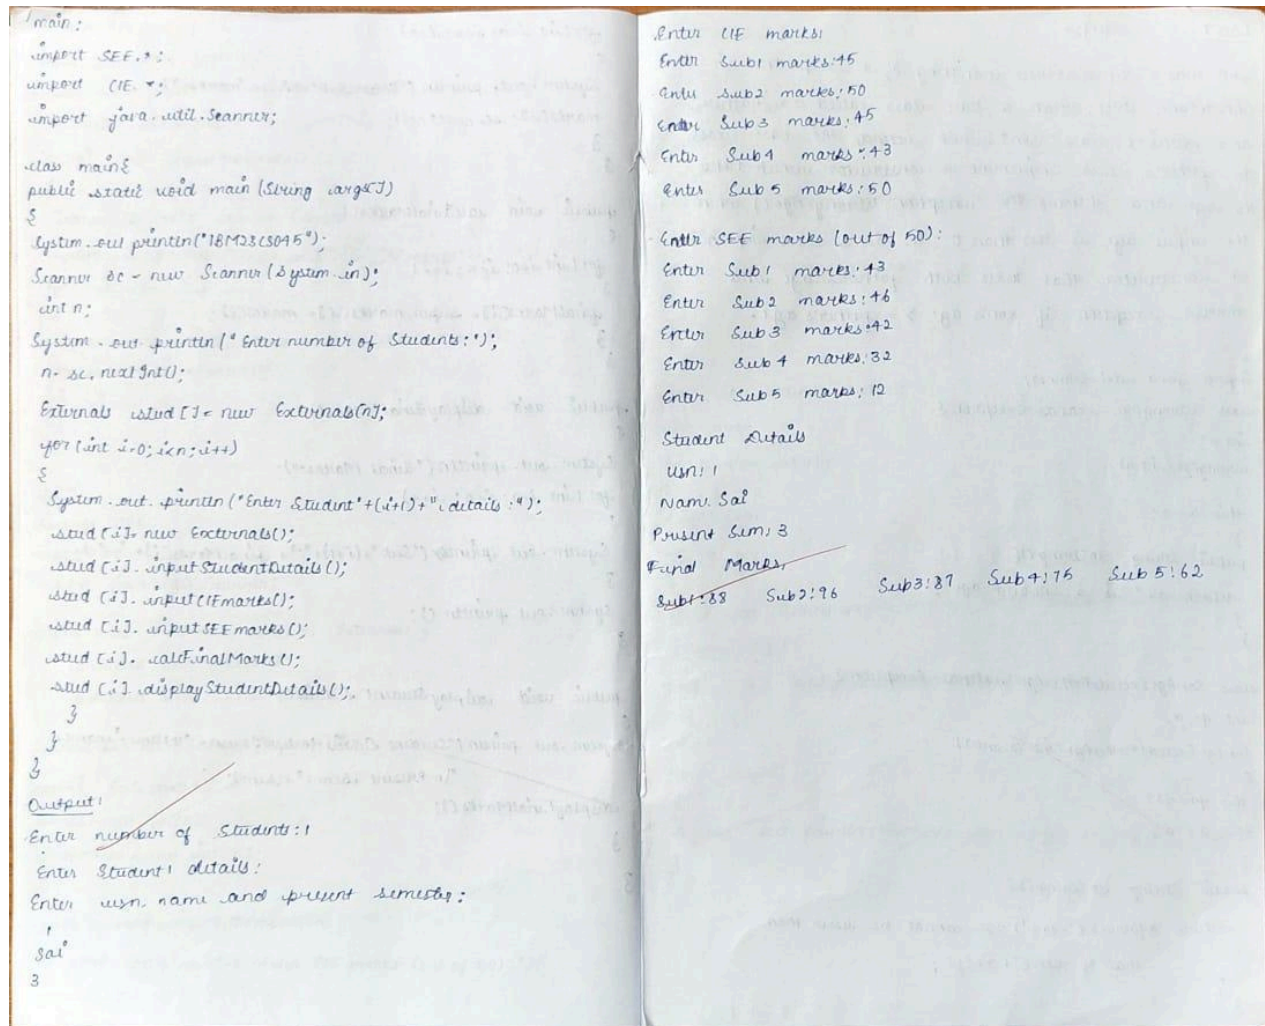 main:
import SEE.*;
import CIE.*;
import java.util.Scanner;
class main{
public static void main (String args[])
{
System.out println("1BM23CS045");
Scanner sc = new Scanner (System.in);
int n;
System.out println ("Enter number of Students:");
n= sc. nextInt();
Externals stud []= new Externals[n];
for (int i=0; i<n; i++)
{
System.out. println ("Enter Student"+(i+1)+" details:");
stud [i]= new Externals();
stud [i]. inputStudentDetails();
stud [i]. inputCIEmarks();
stud [i]. inputSEEmarks();
stud [i]. calcFinalMarks();
stud [i] displayStudentDetails();
}
}
}
Output:
Enter number of Students:1
Enter Student1 details:
Enter usn, name and present semester:
1
Sai
3
Enter CIE marks:
Enter Sub1 marks:45
Enter Sub2 marks:50
Enter Sub3 marks:45
Enter Sub4 marks:43
Enter Sub5 marks:50
Enter SEE marks (out of 50):
Enter Sub1 marks:43
Enter Sub2 marks:46
Enter Sub3 marks:42
Enter Sub4 marks:32
Enter Sub5 marks:12
Student Details
usn: 1
Name: Sai
Present Sem: 3
Final Marks:
Sub1:88 Sub2:96 Sub3:87 Sub4:75 Sub5:62